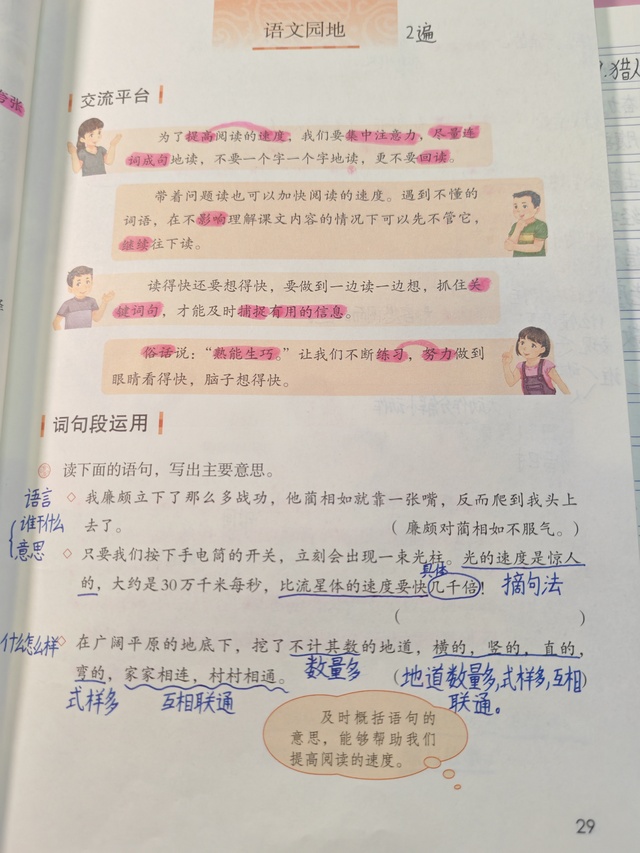 语文园地
2遍
猎人
夸张
交流平台
为了提高阅读的速度，我们要集中注意力，尽量连
词成句地读，不要一个字一个字地读，更不要回读。
带着问题读也可以加快阅读的速度。遇到不懂的
词语，在不影响理解课文内容的情况下可以先不管它，
继续往下读。
读得快还要想得快，要做到一边读一边想，抓住关
键词句，才能及时捕捉有用的信息。
俗话说：“熟能生巧。”让我们不断练习，努力做到
眼睛看得快，脑子想得快。
词句段运用
读下面的语句，写出主要意思。
语言
谁干什么
意思
◇ 我廉颇立下了那么多战功，他蔺相如就靠一张嘴，反而爬到我头上
去了。 （廉颇对蔺相如不服气。）
◇ 只要我们按下手电筒的开关，立刻会出现一束光柱。光的速度是惊人
具体
的，大约是30万千米每秒，比流星体的速度要快几千倍！ 摘句法
（ ）
什么怎么样
◇ 在广阔平原的地底下，挖了不计其数的地道，横的，竖的，直的，
弯的，家家相连，村村相通。 数量多 （地道数量多，式样多，互相）
式样多 互相联通 联通。
及时概括语句的
意思，能够帮助我们
提高阅读的速度。
29